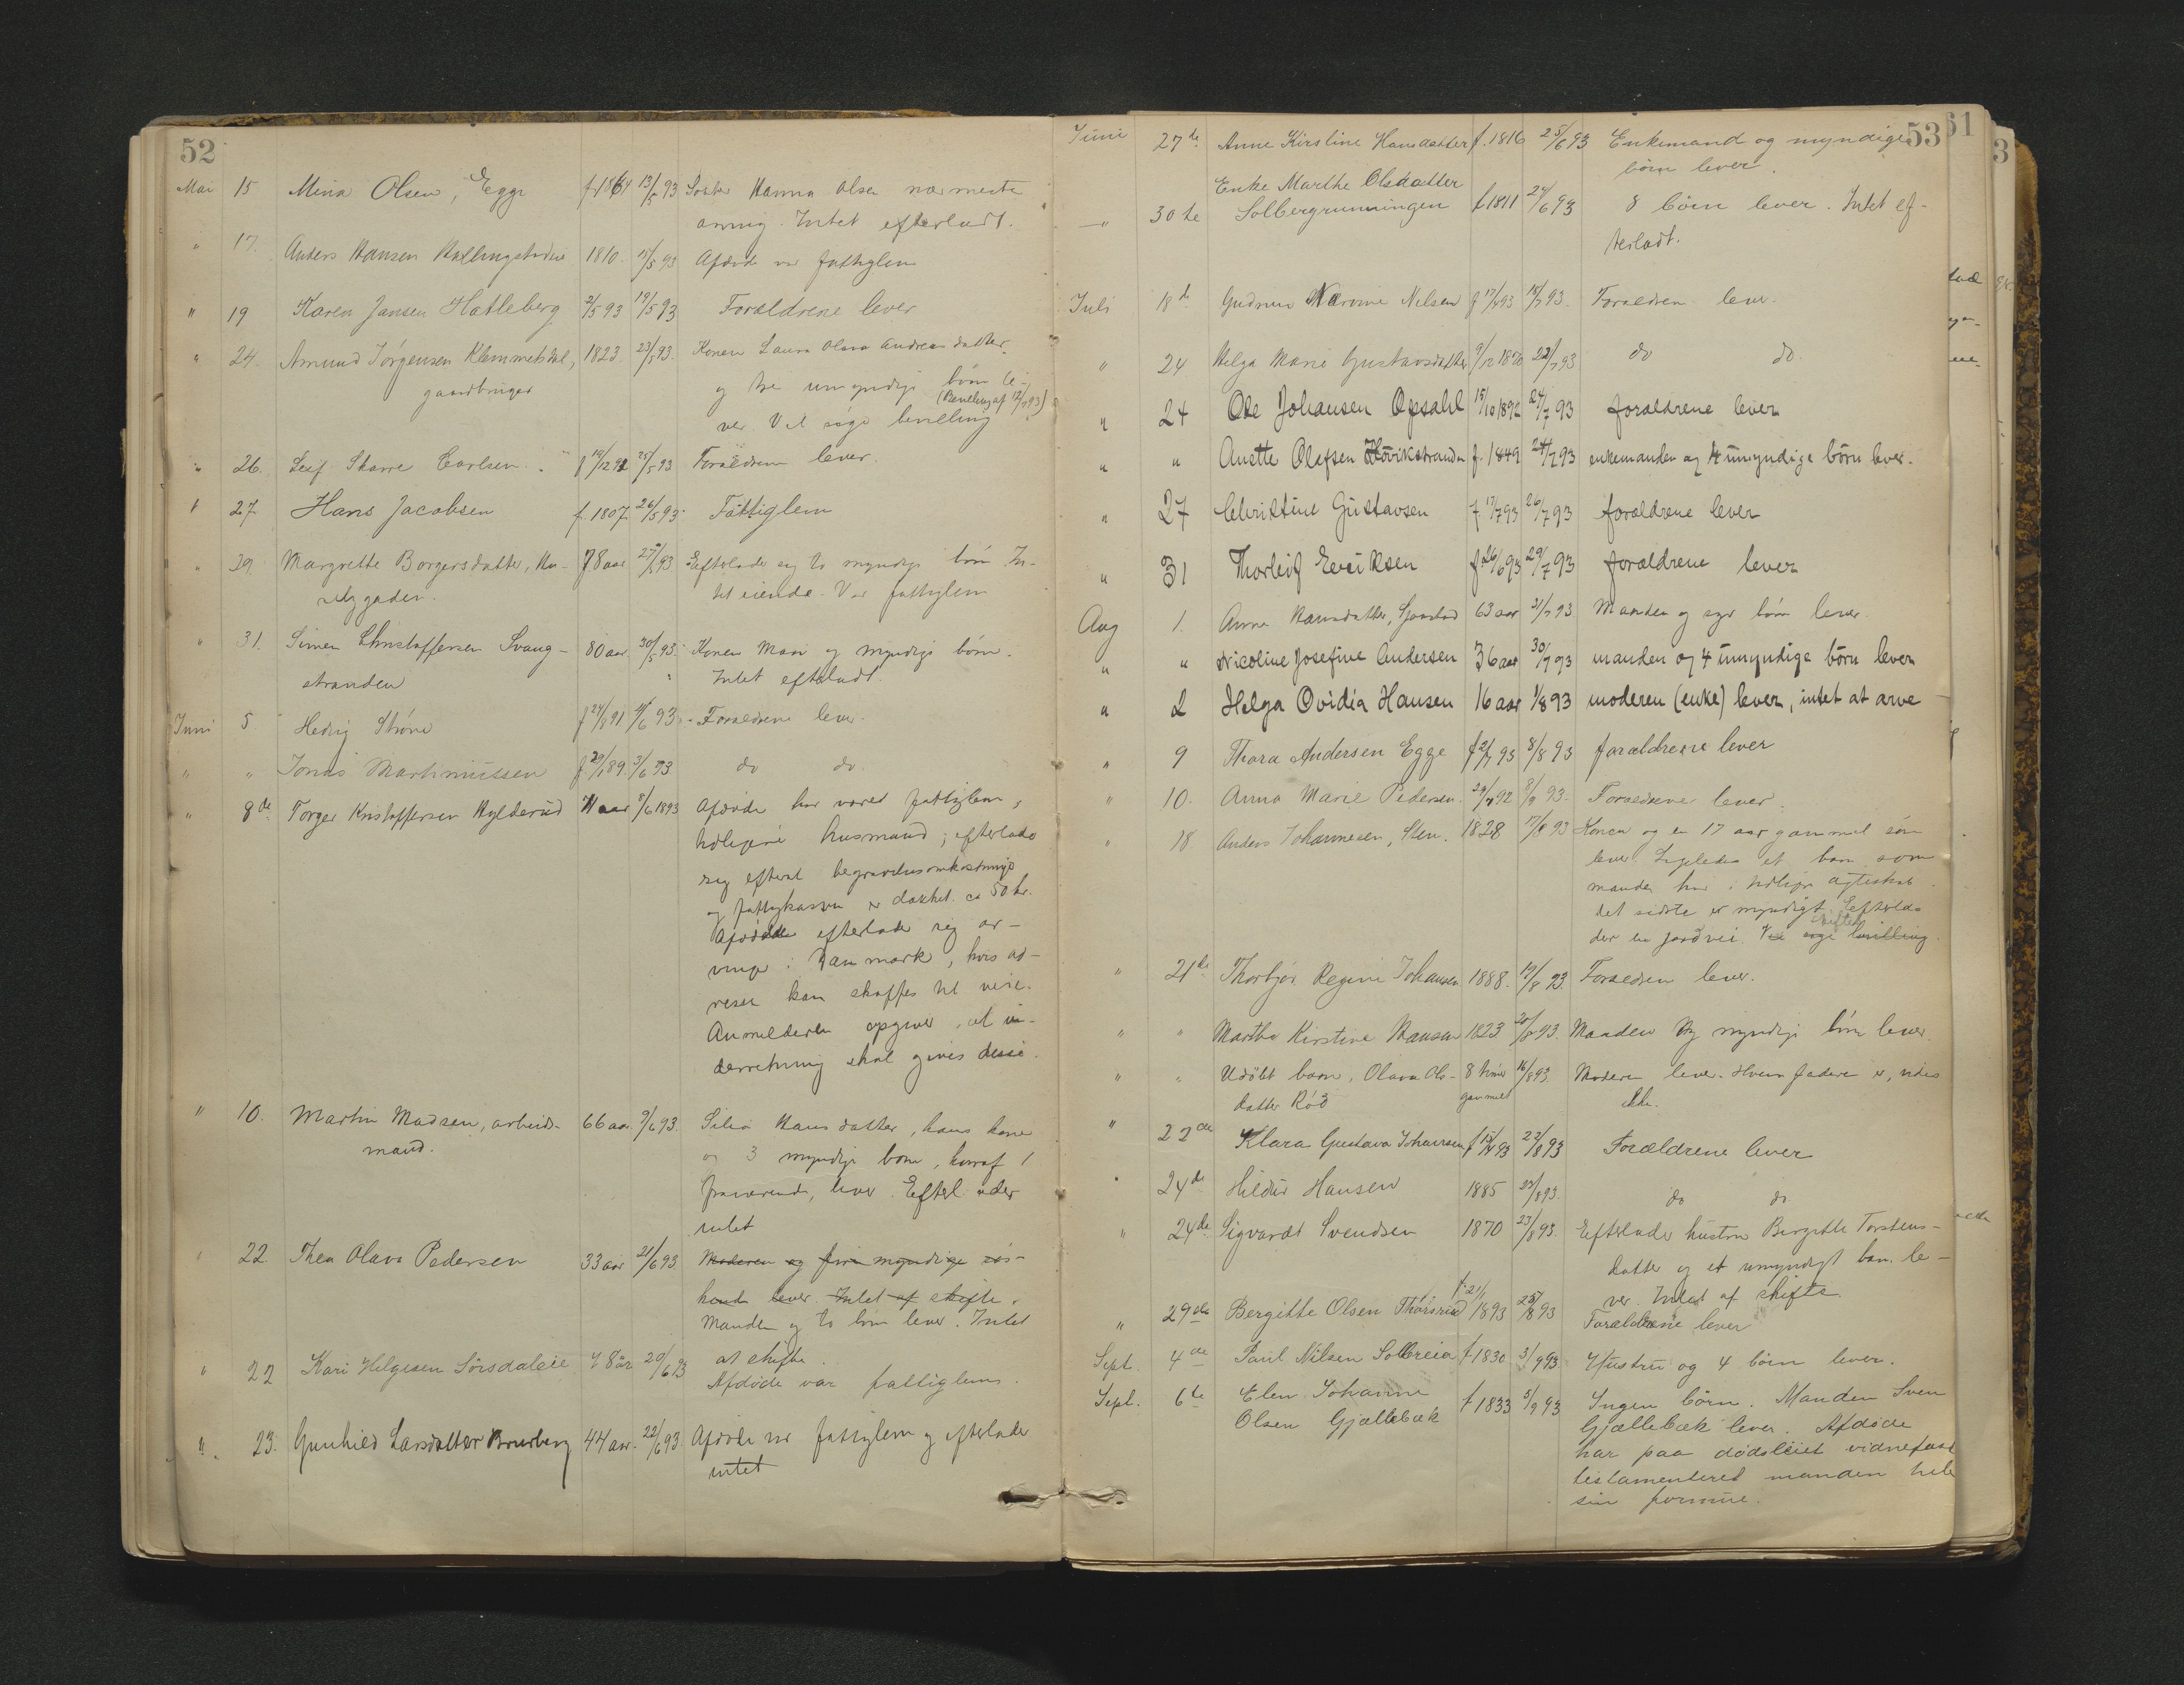 52
Mai 15 Mina Olsen, Egge f. 1864 13/5 93 Søster Hanna Olsen nærmeste
arving. Intet efterladt.
" 17. Anders Hansen 1810. 15/5 93 Afdøde var fattiglem
" 19 Karen Jansen Hatleberg 2/5 93 19/5 93 Forældrene lever
" 24. Amund Jørgensen Klemmetsdal, 1823 23/5 93. Konen Laura Olava Andreasdatter
gaardbruger og tre umyndige børn le-
(Bevilling af 12/7 93)
ver. Vil søge bevilling
" 26. Leif Skarre Carlsen f 19/12 92 25/5 93 Forældrene lever.
" 27 Hans Jacobsen f. 1807 26/5 93 Fattiglem
" 29 Margrette Borgersdatter, Ha- 78 aar 27/5 93 Efterlader sig to myndige børn In-
gaden. tet eiende. Var fattiglem
" 31. Simen Christoffersen Svang- 80 aar 30/5 93. Konen Mari og myndige børn.
stranden Intet efterladt.
Juni 5 Hedvig Strøm f 24/2 91 4/6 93 Forældrene lever.
" " Jonas Martinussen f 20/1 89. 3/6 93 do do.
" 8de Torger Kristoffersen Hylderud 71 aar 8/6 1893 Afdøde har været fattiglem,
tidligere husmand; efterlader
sig efterat begravelsesomkostninger
og fattigkassen er dækket ca 50 kr.
Afdøde efterlader sig ar-
vinger i Danmark, hvis ad-
resser kan skaffes til veie.
Anmelderen opgiver, at un-
derretning skal gives disse.
" 10. Martin Madsen, arbeids- 66 aar 9/6 93. Silia Hansdatter, hans kone
mand. og 3 myndige børn, hvoraf 1
fraværende, lever. Efterlader
intet
" 22. Thea Olava Pedersen 33 aar 21/6 93. Moderen og fire myndige søs-
kende lever. Intet at skifte.
Manden og to børn lever. Intet
at skifte.
" 22 Kari Helgesen Sørsdaleie 78 år 20/6 93 Afdøde var fattiglem.
" 23. Gunhild Larsdatter Bruserberg 44 aar. 22/6 93 Afdøde var fattiglem og efterlader
intet
53
Juni 27de Anne Kirstine Hansdatter f. 1816 25/6 93 Enkemand og myndige
børn lever.
Enke Marthe Olsdatter
" 30te Solbergrunningen f 1811 24/6 93 8 børn lever. Intet ef-
terladt.
Juli 18de Gudrun Narvine Nilsen f 17/4 93 18/7 93. Forældren lever.
" 24 Helga Marie Gustavsdatter 9/12 1870 22/7 93 do do.
" 24 Ole Johansen Opsahl 15/10 1892 24/7 93 forældrene lever
" " Anette Olefsen Høvikstranden f. 1849 24/7 93 enkemanden og 4 umyndige børn lever.
" 27 Christine Gustavsen f 17/7 93 26/7 93 forældrene lever
" 31 Thorleif Eeriksen f 26/6 93 29/7 93 forældrene lever
Aug 1. Anna Hansdatter, 63 aar 31/7 93 Manden og syv børn lever
" " Nicoline Josefine Andersen 36 aar 30/7 93 manden og 4 umyndige børn lever
" 2 Helga Ovidia Hansen 16 aar 1/8 93 moderen (enke) lever, intet at arve
" 9 Thora Andersen Egge f 2/7 93 8/8 93 forældrene lever
" 10. Anna Marie Pedersen. 29/7 92 8/8 93. Forældrene lever.
" 18. Anders Johannesen, Sten. 1828 17/8 93 Konen og en 17 aar gammel søn
lever. Ligeledes et barn som
manden har i tidligere ægteskab.
det sidste er myndigt. Efterla-
skiftes
der en jordvei. Vil søge bevilling
" 21de Thorbjør Regine Johansen 1888. 19/8 93. Forældren lever.
" " Martha Kirstine Hansen 1823 20/8 93. Manden og myndige børn lever
" " Udøbt barn, Olava Ols- 8 timer 16/8 93. Moderen lever. Hvem faderen er, vides
datter Rød gammel ikke.
" 22de Klara Gustava Johansen f 15/4 93 22/8 93 Forældrene lever
" 24de Hildur Hansen 1885 23/8 93. do do
" 24de Sigvardt Svendsen 1870 23/8 93. Efterlader hustru Bergitte Torstens-
datter og et umyndigt barn le-
ver. Intet at skifte.
f. 21/1
" 29de Bergitte Olsen Thorsrud 1893 25/8 93 Forældrene lever
Sept. 4de Paul Nilsen Solbreia f 1830 3/9 93. Hustru og 4 børn lever.
Sept. 6te Elen Johanne f 1833 5/9 93 Ingen børn. Manden Sven
Olsen Gjællebæk Gjællebæk lever. Afdøde
har paa dødsleiet vidnefast
testamenteret manden hele
sin formue.
61
3